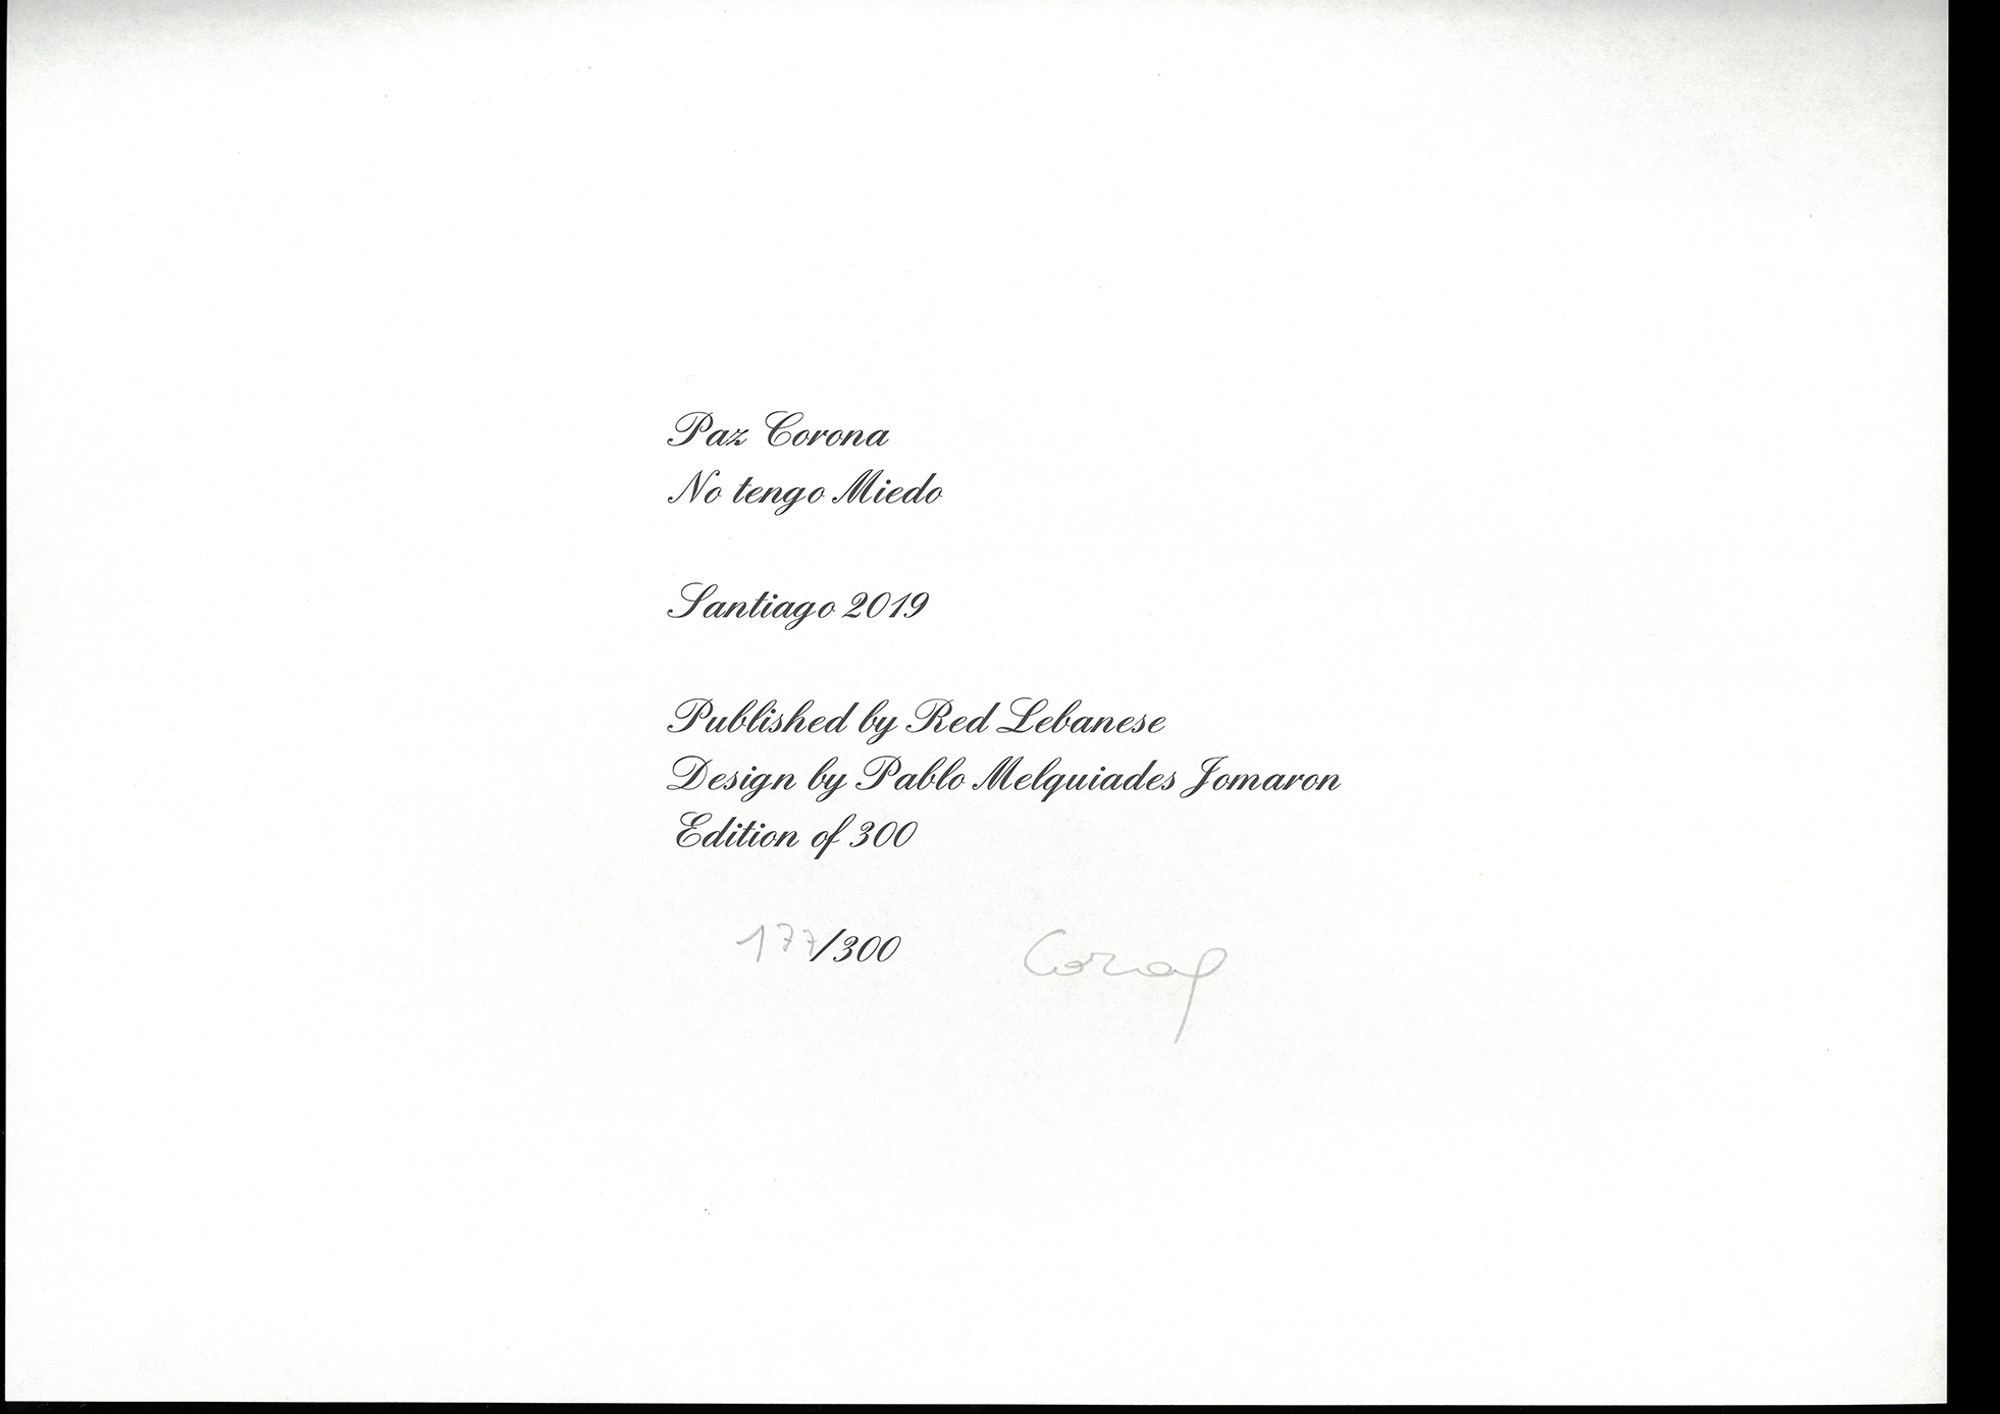 Paz Corona
No tengo Miedo
Santiago 2019
Published by Red Lebanese
Design by Pablo Melquiades Jomaron
Edition of 300
177/300